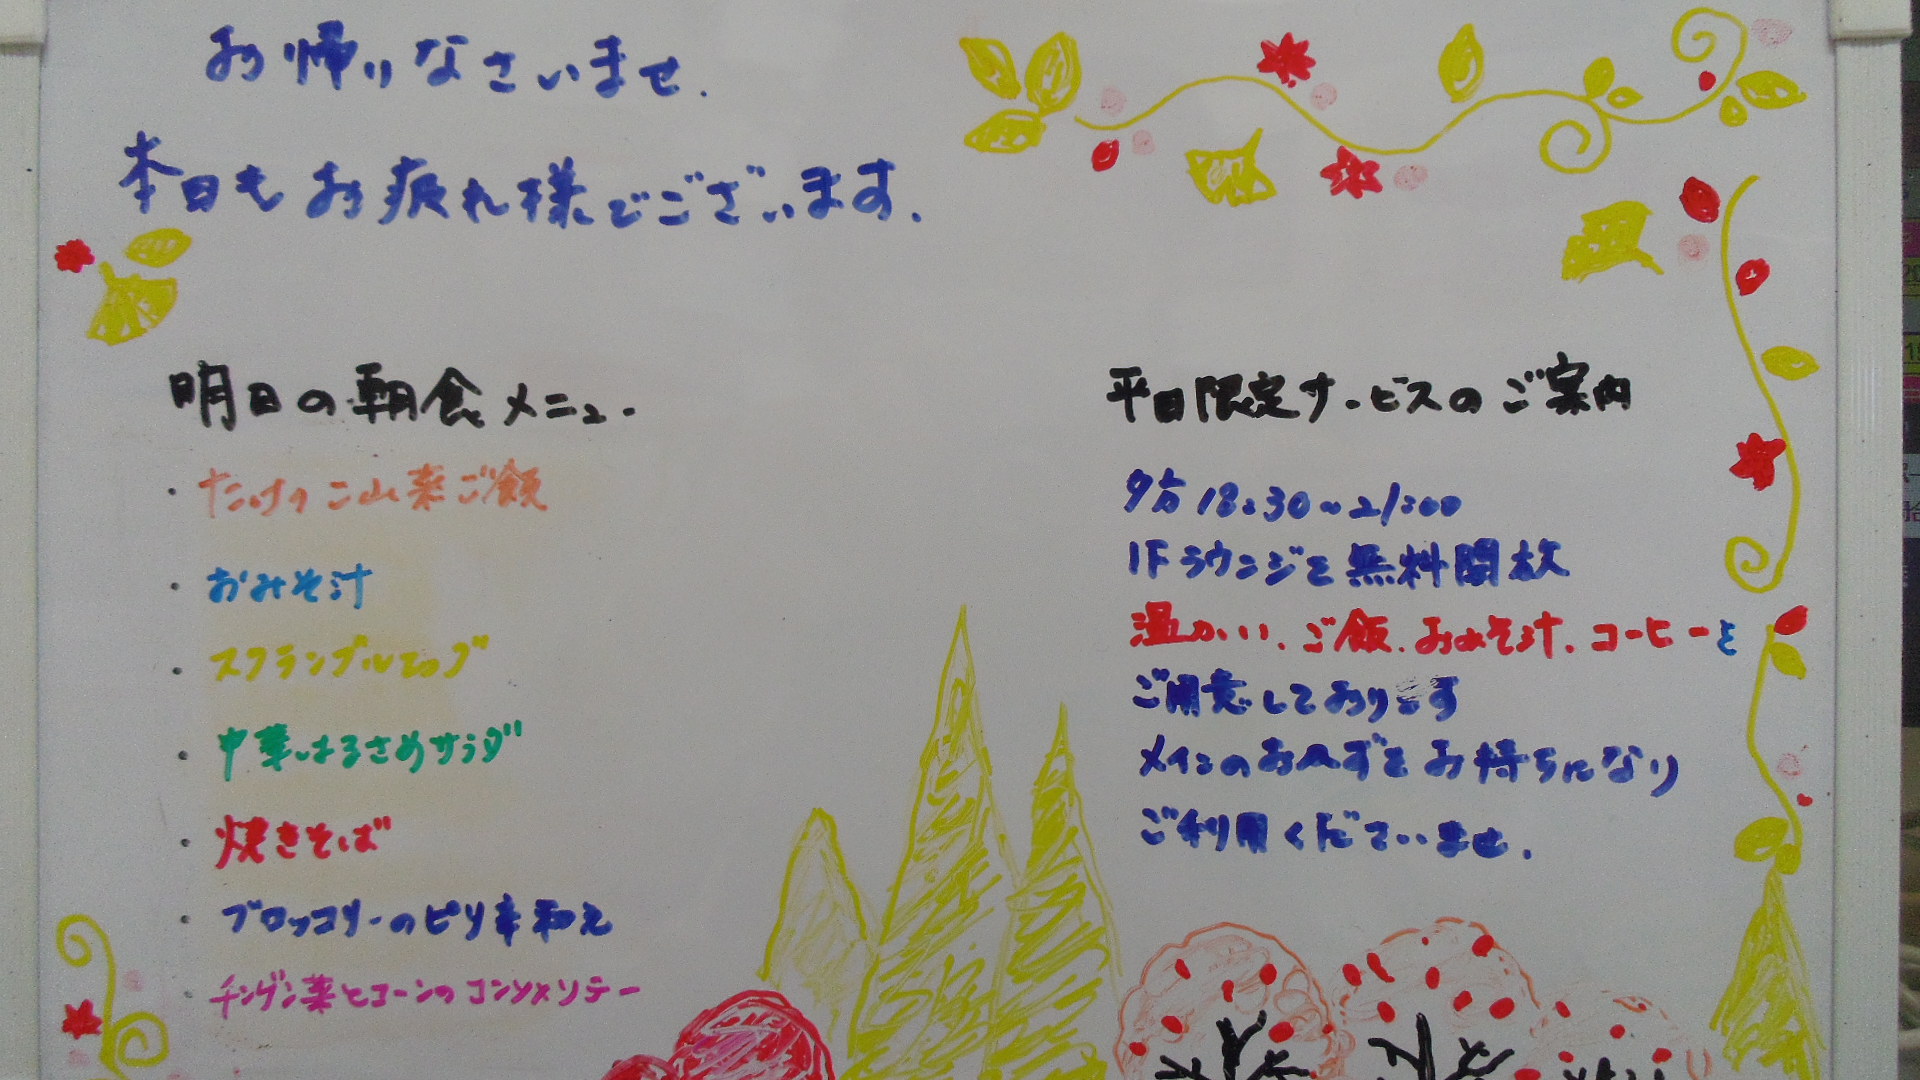 お帰りなさいませ.
本日もお疲れ様でございます.
明日の朝食メニュー
・たけのこ山菜ご飯
・おみそ汁
・スクランブルエッグ
・中華はるさめサラダ
・焼きそば
・ブロッコリーのピリ辛和え
・チンゲン菜とコーンのコンソメソテー
平日限定サービスのご案内
夕方18:30~21:00
1Fラウンジを無料開放
温かい、ご飯、おみそ汁、コーヒーを
ご用意しております
メインのおかずをお持ちになり
ご利用くださいませ.